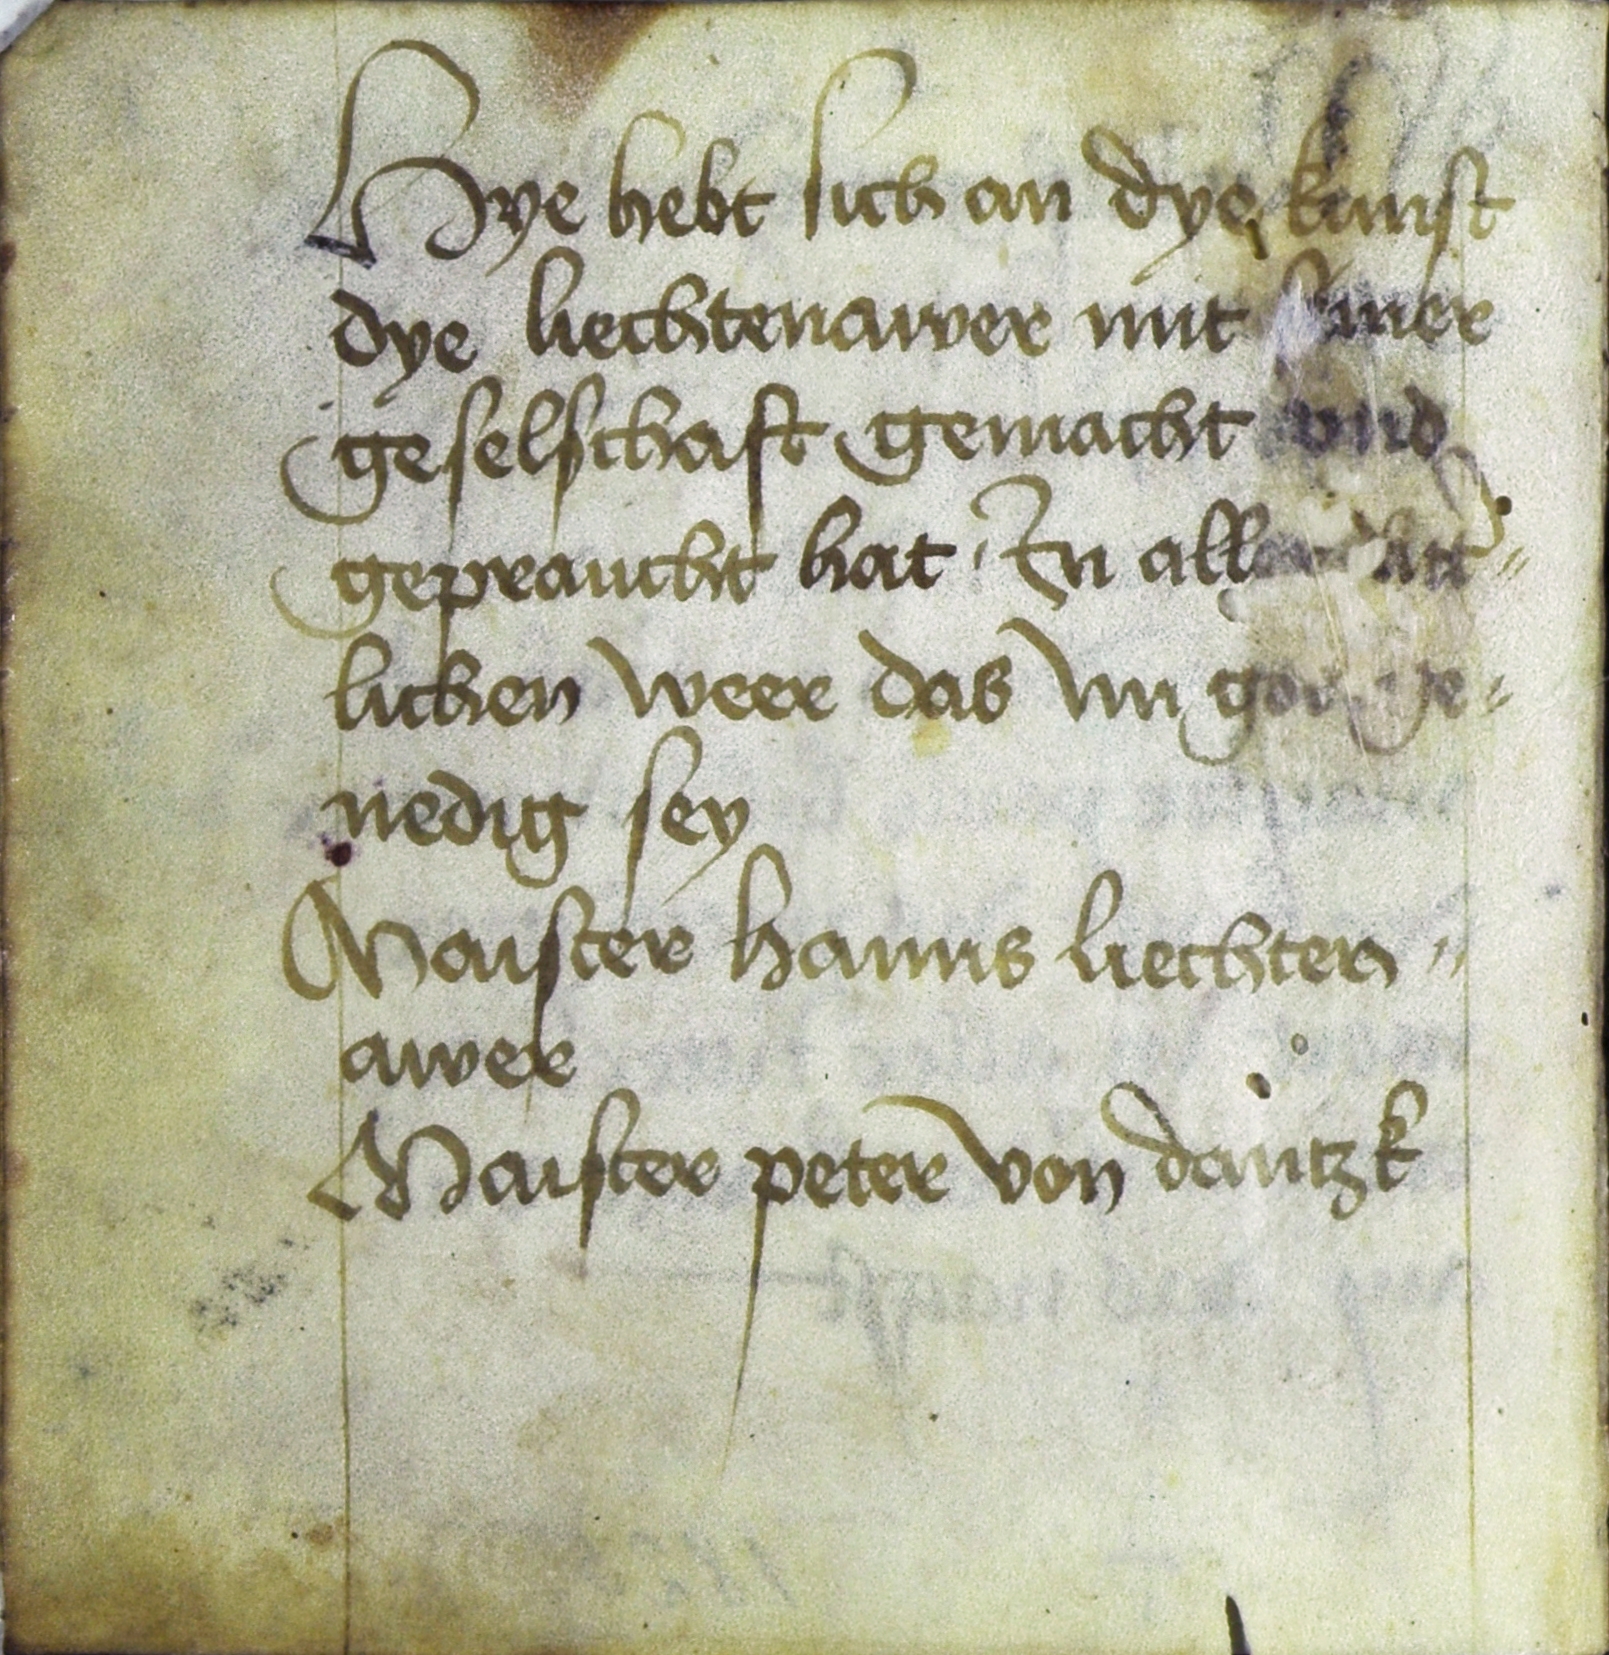 Hye hebt sich an dye kunst
dye liechtenawer mit seiner
geselschaft gemacht vnd
gepraucht hat In aller
lichen weer das im got ge=
nedig sey
Maister hanns liechten=
awer
Maister peter von dantzk